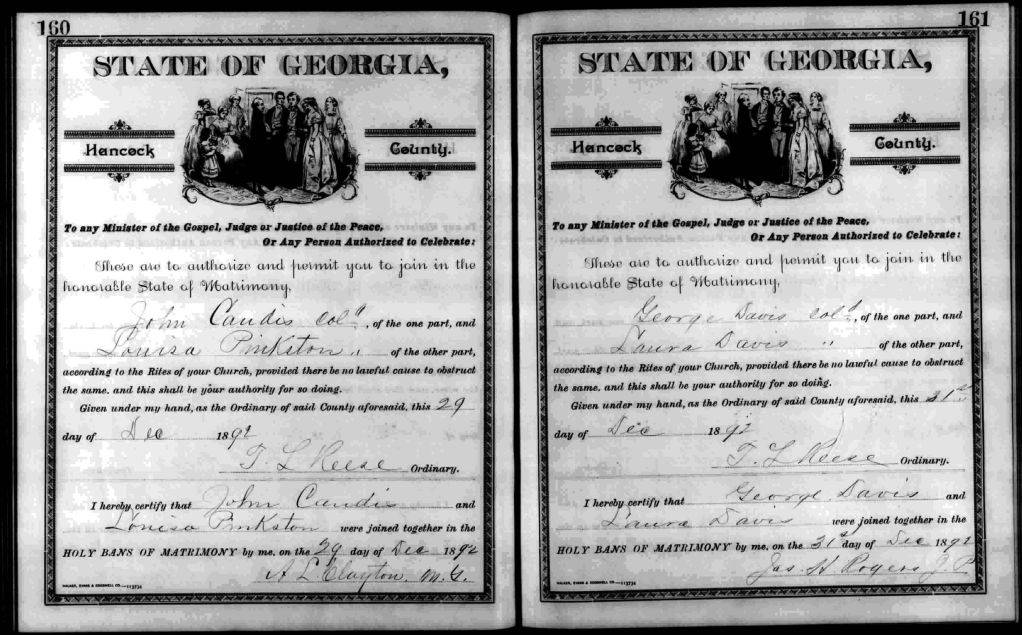 160
STATE OF GEORGIA,
Hancock County.
To any Minister of the Gospel, Judge or Justice of the Peace,
Or Any Person Authorized to Celebrate:
These are to authorize and permit you to join in the
honorable State of Matrimony,
John Candis Cold, of the one part, and
Louisa Pinkston " of the other part,
according to the Rites of your Church, provided there be no lawful cause to obstruct
the same, and this shall be your authority for so doing.
Given under my hand, as the Ordinary of said County aforesaid, this 29
day of Dec 1892
T. L Reese Ordinary.
I hereby certify that John Candis and
Louisa Pinkston were joined together in the
HOLY BANS OF MATRIMONY by me, on the 29 day of Dec 1892
A L Clayton, M. G.
WALKER, EVANS & COGSWELL CO.
161
STATE OF GEORGIA,
Hancock County.
To any Minister of the Gospel, Judge or Justice of the Peace,
Or Any Person Authorized to Celebrate:
These are to authorize and permit you to join in the
honorable State of Matrimony,
George Davis Cold, of the one part, and
Laura Davis " of the other part,
according to the Rites of your Church, provided there be no lawful cause to obstruct
the same, and this shall be your authority for so doing.
Given under my hand, as the Ordinary of said County aforesaid, this 31st
day of Dec 1892
T. L Reese Ordinary.
I hereby certify that George Davis and
Laura Davis were joined together in the
HOLY BANS OF MATRIMONY by me, on the 31st day of Dec 1892
Jas. H Rogers J. P.
WALKER, EVANS & COGSWELL CO.